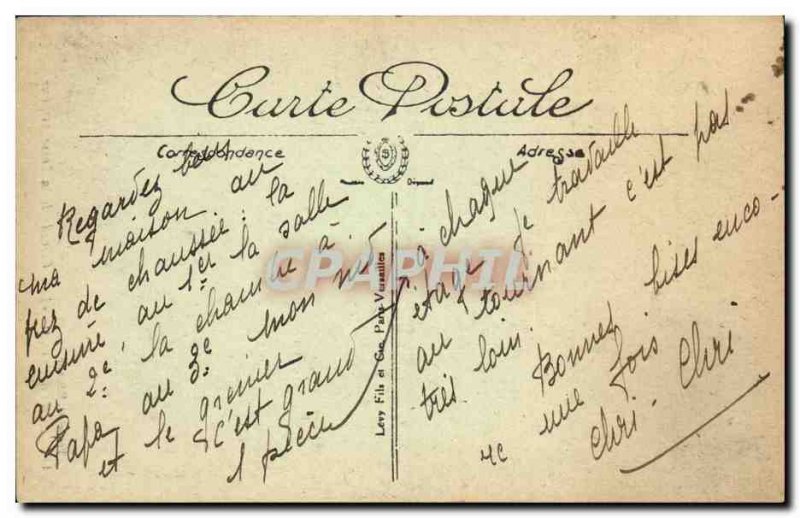 Carte Postale
Correspondance
Adresse
Regardez bien
ma maison au
rez de chaussée : la
cuisine, au 1er la salle
au 2e la chambre à
Papa au 3e mon nid
et le grenier
C'est grand
1 pièce
à chaque
étage. Je travaille
au tournant c'est pas
très loin.
Bonnes bises enco-
re une fois
Chri - Chri
Levy Fils et Cie, Paris-Versailles
CPAPHIL